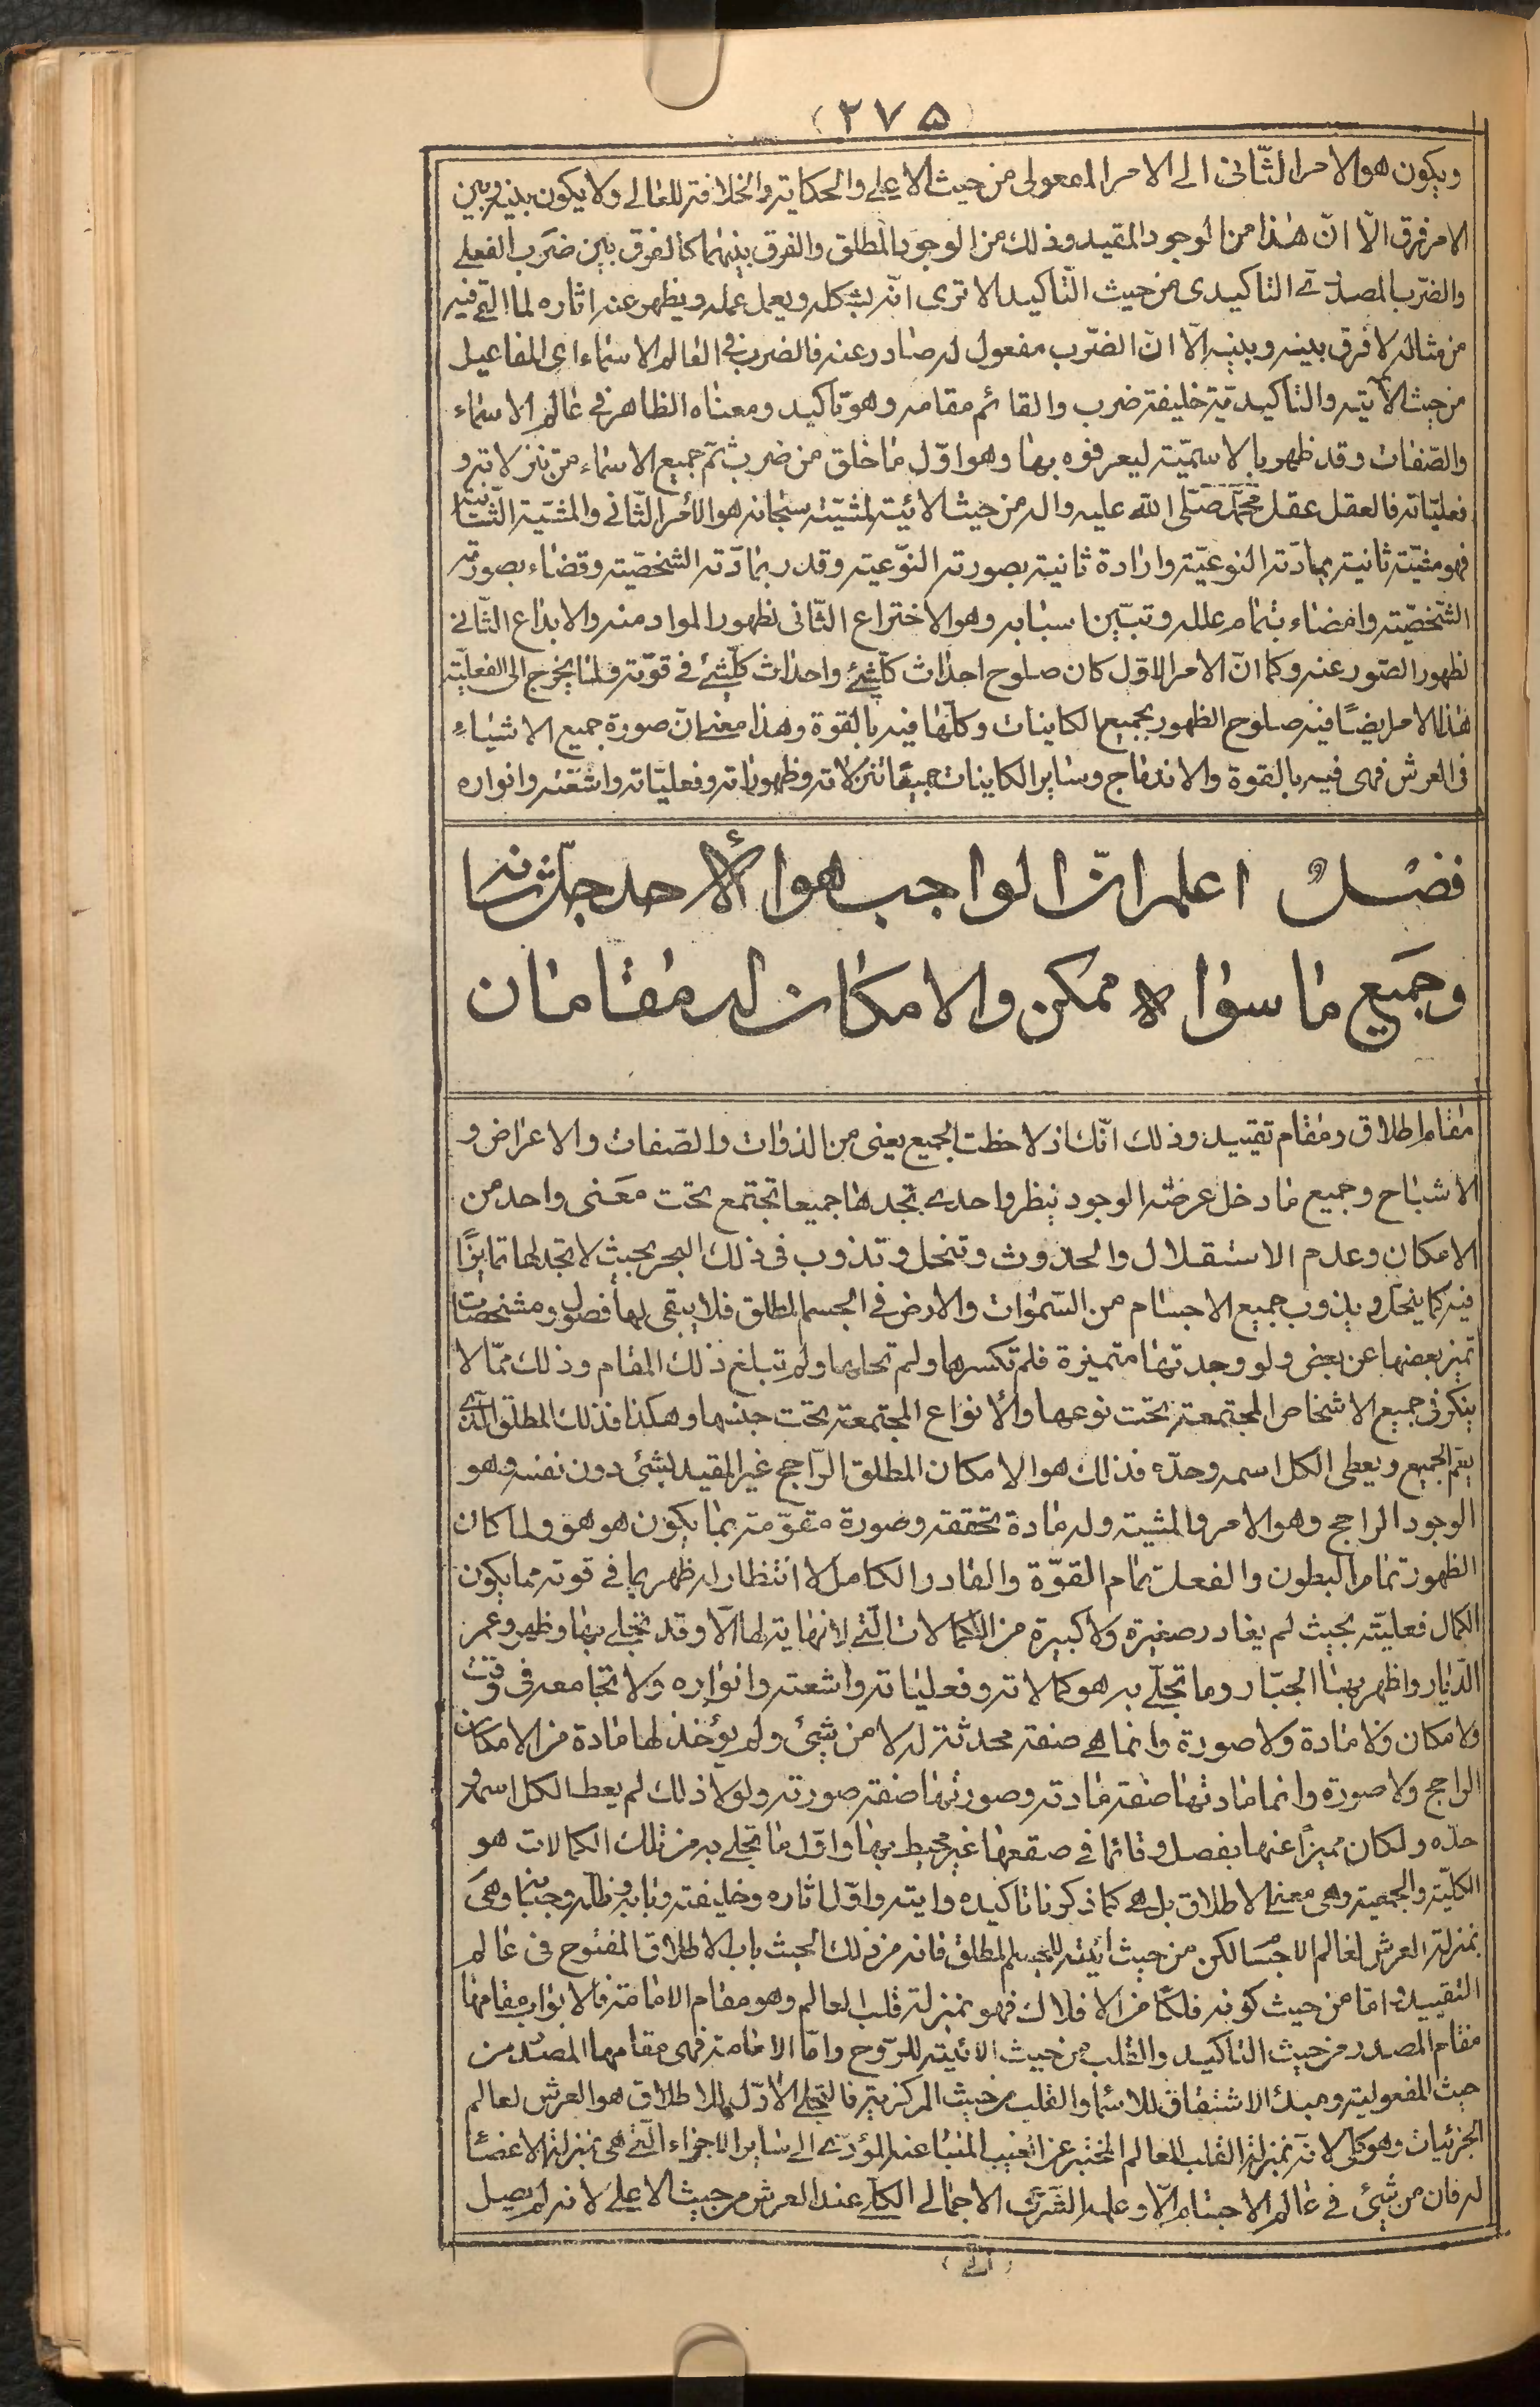 (۲۷۵)
ويكون هو الامر الثّانى الى الامر المعولى من حيث الاعلى والحكاية والخلافة للعالى ولا يكون بينه وبين
الامر فرق الّا انّ هذا من الوجود المقيد وذلك من الوجود المطلق والفرق بينهما كالفرق بين ضَرَب الفعلى
والضّرب المصدرى التاكيدى من حيث التّاكيد الا ترى انّه بشكله ويعمل عمله ويظهر عنه اثاره لما القى فيه
من مثاله لا فرق بينه وبينه الّا انّ الضّرب مفعول له صادر عنه فالضرب فى العالم الاسماء اى المفاعيل
من حيث الآيتيه والتاكيديّة خليفة ضرب والقائم مقامه وهو تاكيد ومعناه الظاهر فى عالم الاسماء
والصّفات وقد ظهر بالاسميّة ليعرفوه بها وهو اوّل ما خلق من ضرب ثم جميع الاسماء من تنزلاته و
فعليّاته فالعقل عقل محمّد صلّى الله عليه واله من حيث الائية لمشيّته سبحانه هو الأمر الثّانى والمشيّة الثّانية
فهو مشيّة ثانية بمادّته النوعيّة وارادة ثانية بصورته النّوعية وقدر بمادّته الشخصّية وقضاء بصورته
الشّخصّية وامضاء بتمام علله وتبيّن اسبابه وهو الاختراع الثّانى لظهور المواد منه والابداع الثّانى
لظهور الصّور عنه وكما انّ الامر الاوّل كان صلوح احداث كلّشئ واحداث كلّشئ فى قوّته ولمّا يخرج الى الفعليّة
هذا الامر ايضًا فيه صلوح الظهور بجميع الكاينات وكلّها فيه بالقوة وهذا معنى ان صورة جميع الاشياء
فى العرش فهى فيه بالقوة والاندماج وساير الكاينات جميعًا تنزلاته وظهوراته وفعليّاته واشعّته وانواره
فصْلٌ اعلم انّ الواجب هو الأحد جلّ شانه
وجَميع ما سواه ممكن والامكان له مقامان
مقام اطلاق ومقام تقييد وذلك انّك اذ لاحظت الجميع يعنى من الذوات والصّفات والاعراض و
الاشباح وجميع ما دخل عرضة الوجود بنظر واحد تجدها جميعا تجتمع تحت معَنى واحد من
الامكان وعدم الاستقلال والحدوث وتنحل وتذوب فى ذلك البحر بحيث لا تجد لها تمايزًا
فيه كما ينحل ويذوب جميع الاجسام من السّموات والارض فى الجسم المطلق فلا يبقى لها فصول ومشخصات
تميز بعضها عن بعض ولو وجدتها متميزة فلم تكسرها ولم تحلها ولم تبلغ ذلك المقام وذلك ممّا لا
ينكر فى جميع الاشخاص المجتمعة تحت نوعها والأنواع المجتمعة تحت جنسها وهكذا فذلك المطلق الّذى
يعّم الجميع ويعطى الكل اسمه وحدّه فذلك هو الامكان المطلق الرّاجح غير المقيد بشئ دون نفسه وهو
الوجود الراجح وهو الامر والمشية وله مادة تحققه وصورة مقوّمة بما يكون هو هو ولما كان
الظهور تمام البطون والفعلية تمام القوّة والقادر الكامل لا انتظار له ظهر بما فى قوته مما يكون
الكمال فعليّته بحيث لم يغادر صغيرة ولا كبيرة من الكمالات الّتى لا نهاية لها الّا وقد تجلى بها وظهر وعمر
الدّيار واظهر بها الجبّار وما تجلّى به هو كمالاته وفعلياته واشعته وانواره ولا تجامعه فى وقت
ولا مكان ولا مادة ولا صورة وانما هى صفة محدثة له لا من شئ ولم يؤخذ لها مادة من الامكان
الراجح ولا صورة وانما مادتها صفة مادته وصورتها صفة صورته ولولا ذلك لم يعط الكل اسمه و
حدّه ولكان مميزًا عنها بفصل وقائما فى صقعها غير محيط بها واوّل ما تجلى به من تلك الكمالات هو
الكليّة والجمعية وهى معنى الاطلاق بل هى كما ذكرنا تاكيده وايته واوّل اثاره وخليفته وبابه وظله وجنابه وهى
بمنزلة العرش لعالم الاجسَام لكن من حيث ائيّته للجسم المطلق فانه من ذلك الحيث باب الاطلاق المفتوح فى عالم
التقييد وامّا من حيث كونه فلكًا من الافلاك فهو بمنزلة قلب العالم وهو مقام الامامة فالابواب مقامها
مقام المصدر من حيث التاكيد والقلب من حيث الائيتية للرّوح وامّا الامامة فهى مقامها المصدر من
حيث المفعولية ومبدء الاشتقاق للاسماء والقلب من حيث المركزية فالتجلى الاوّل للاطلاق هو العرش لعالم
الجزئيات وهو كلى لانّه بمنزلة القلب للعالم المخبر عن الغيب المنبا عنه المؤدّى الى ساير الاجزاء الّتى هى بمنزلة الاعضاء
له فان من شئ فى عالم الاجسام الّا وعليه الشَرَف الاجمالى الكلّى عند العرش من حيث الاعلى لانه لم يصل